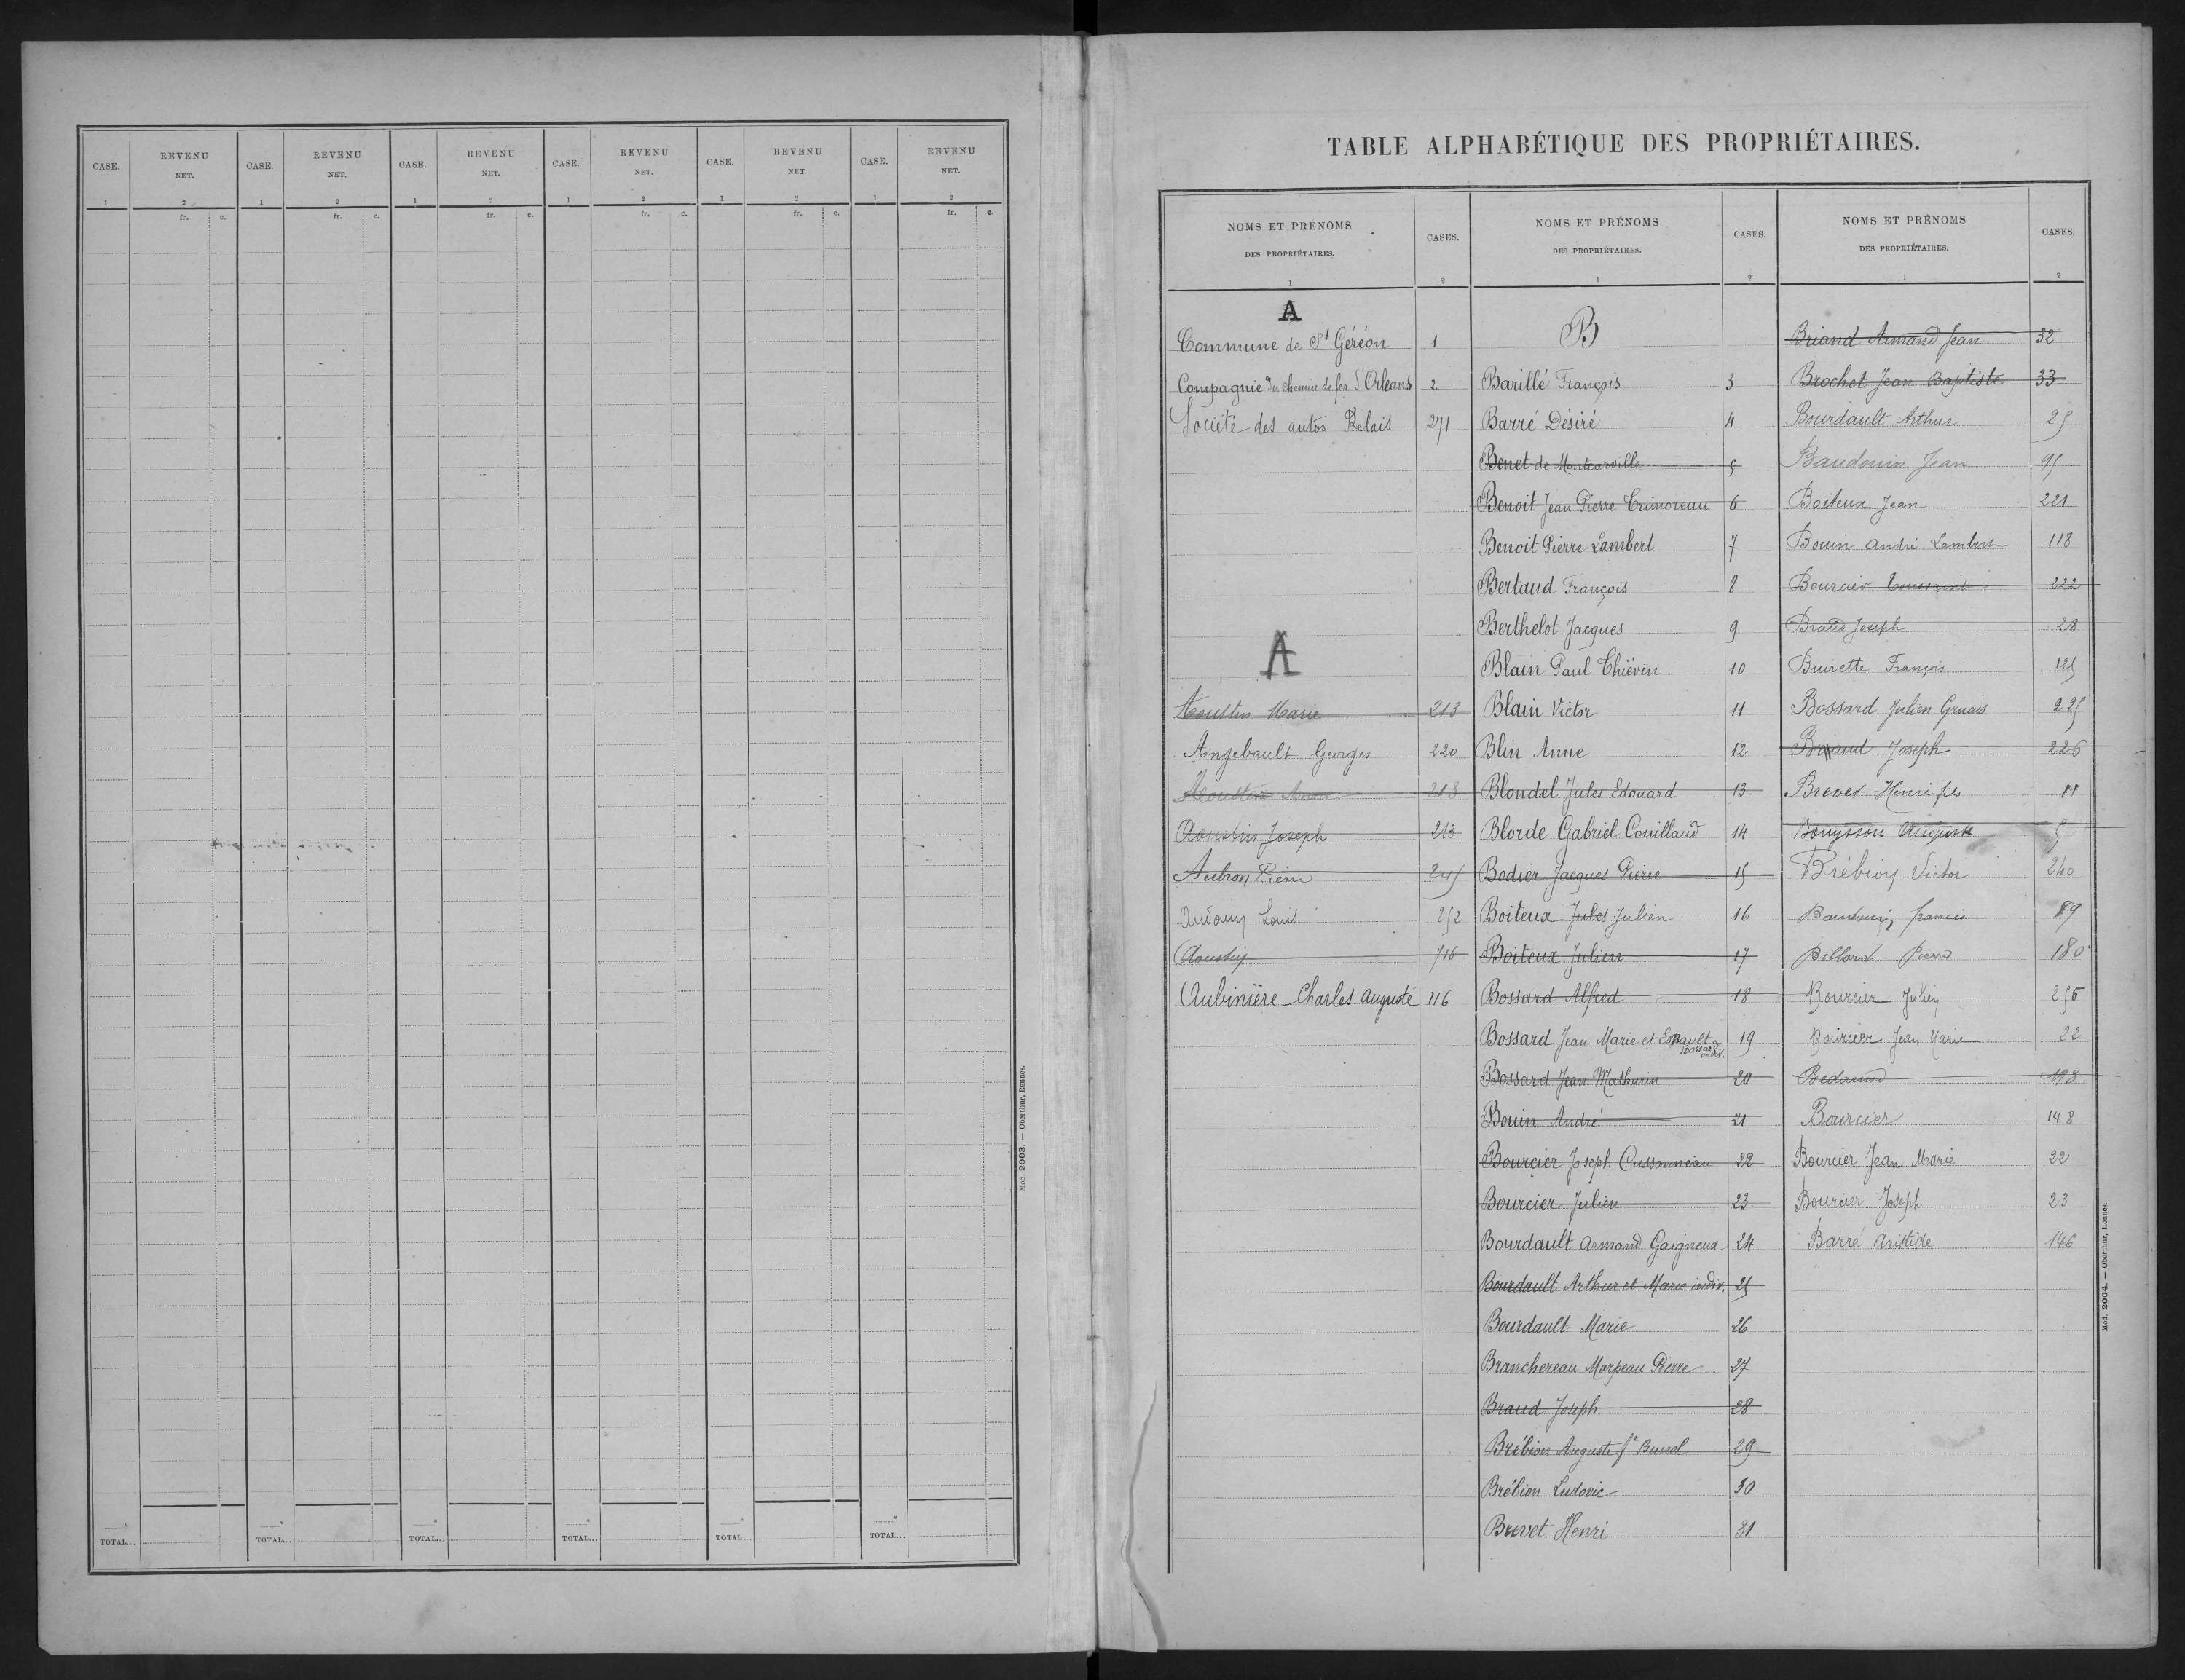 CASE. REVENU NET. CASE. REVENU NET. CASE. REVENU NET. CASE. REVENU NET. CASE. REVENU NET. CASE. REVENU NET.
1 2 1 2 1 2 1 2 1 2 1 2
fr. c. fr. c. fr. c. fr. c. fr. c. fr. c.
TOTAL... TOTAL... TOTAL... TOTAL... TOTAL... TOTAL...
Mod. 2003. — Oberthur, Rennes.
TABLE ALPHABÉTIQUE DES PROPRIÉTAIRES.
NOMS ET PRÉNOMS
DES PROPRIÉTAIRES.
CASES.
1 2
A
Commune de St Géréon 1
Compagnie du chemin de fer d'Orléans 2
Société des autos Relais 271
A
Aoustin Marie 213
Angebault Georges 220
Aoustin 213
Aoustin Joseph 213
Aubron Pierre 245
Audouin Louis 252
Aoustin 716
Aubinière Charles Auguste 116
NOMS ET PRÉNOMS
DES PROPRIÉTAIRES.
CASES.
1 2
B
Barillé François 3
Barré Désiré 4
Benet de 5
Benoit Jean Pierre Trimoreau 6
Benoit Pierre Lambert 7
Bertaud François 8
Berthelot Jacques 9
Blain Paul Thiévin 10
Blain Victor 11
Blin Anne 12
Blondel Jules Edouard 13
Blorde Gabriel Couillaud 14
Bodier Jacques Pierre 15
Boiteux Jules Julien 16
Boiteux Julien 17
Bossard Alfred 18
Bossard Jean Marie et Esnault Bossard indiv. 19
Bossard Jean Mathurin 20
Bouin André 21
Bourcier Joseph Cussonneau 22
Bourcier Julien 23
Bourdault Armand Gaigneux 24
Bourdault Arthur et Marie indiv. 25
Bourdault Marie 26
Branchereau Marpeau Pierre 27
Braud Joseph 28
Brébion Auguste fe Bussel 29
Brébion Ludovic 30
Brevet Henri 31
NOMS ET PRÉNOMS
DES PROPRIÉTAIRES.
CASES.
1 2
Briand Armand Jean 32
Brochet Jean Baptiste 33
Bourdault Arthur 25
Baudouin Jean 95
Boiteux Jean 221
Bouin André Lambert 118
Bourcier Toussaint 222
Braud Joseph 28
Buirette François 125
Bossard Julien Gruais 225
Briand Joseph 226
Brevet Henri fils 11
Bouysson Auguste 5
Brébion Victor 240
Baudouin Francis 89
Billard Pierre 180
Bourcier Julien 256
Bourcier Jean Marie 22
198
Bourcier 148
Bourcier Jean Marie 22
Bourcier Joseph 23
Barré Aristide 146
Mod. 2004. — Oberthur, Rennes.